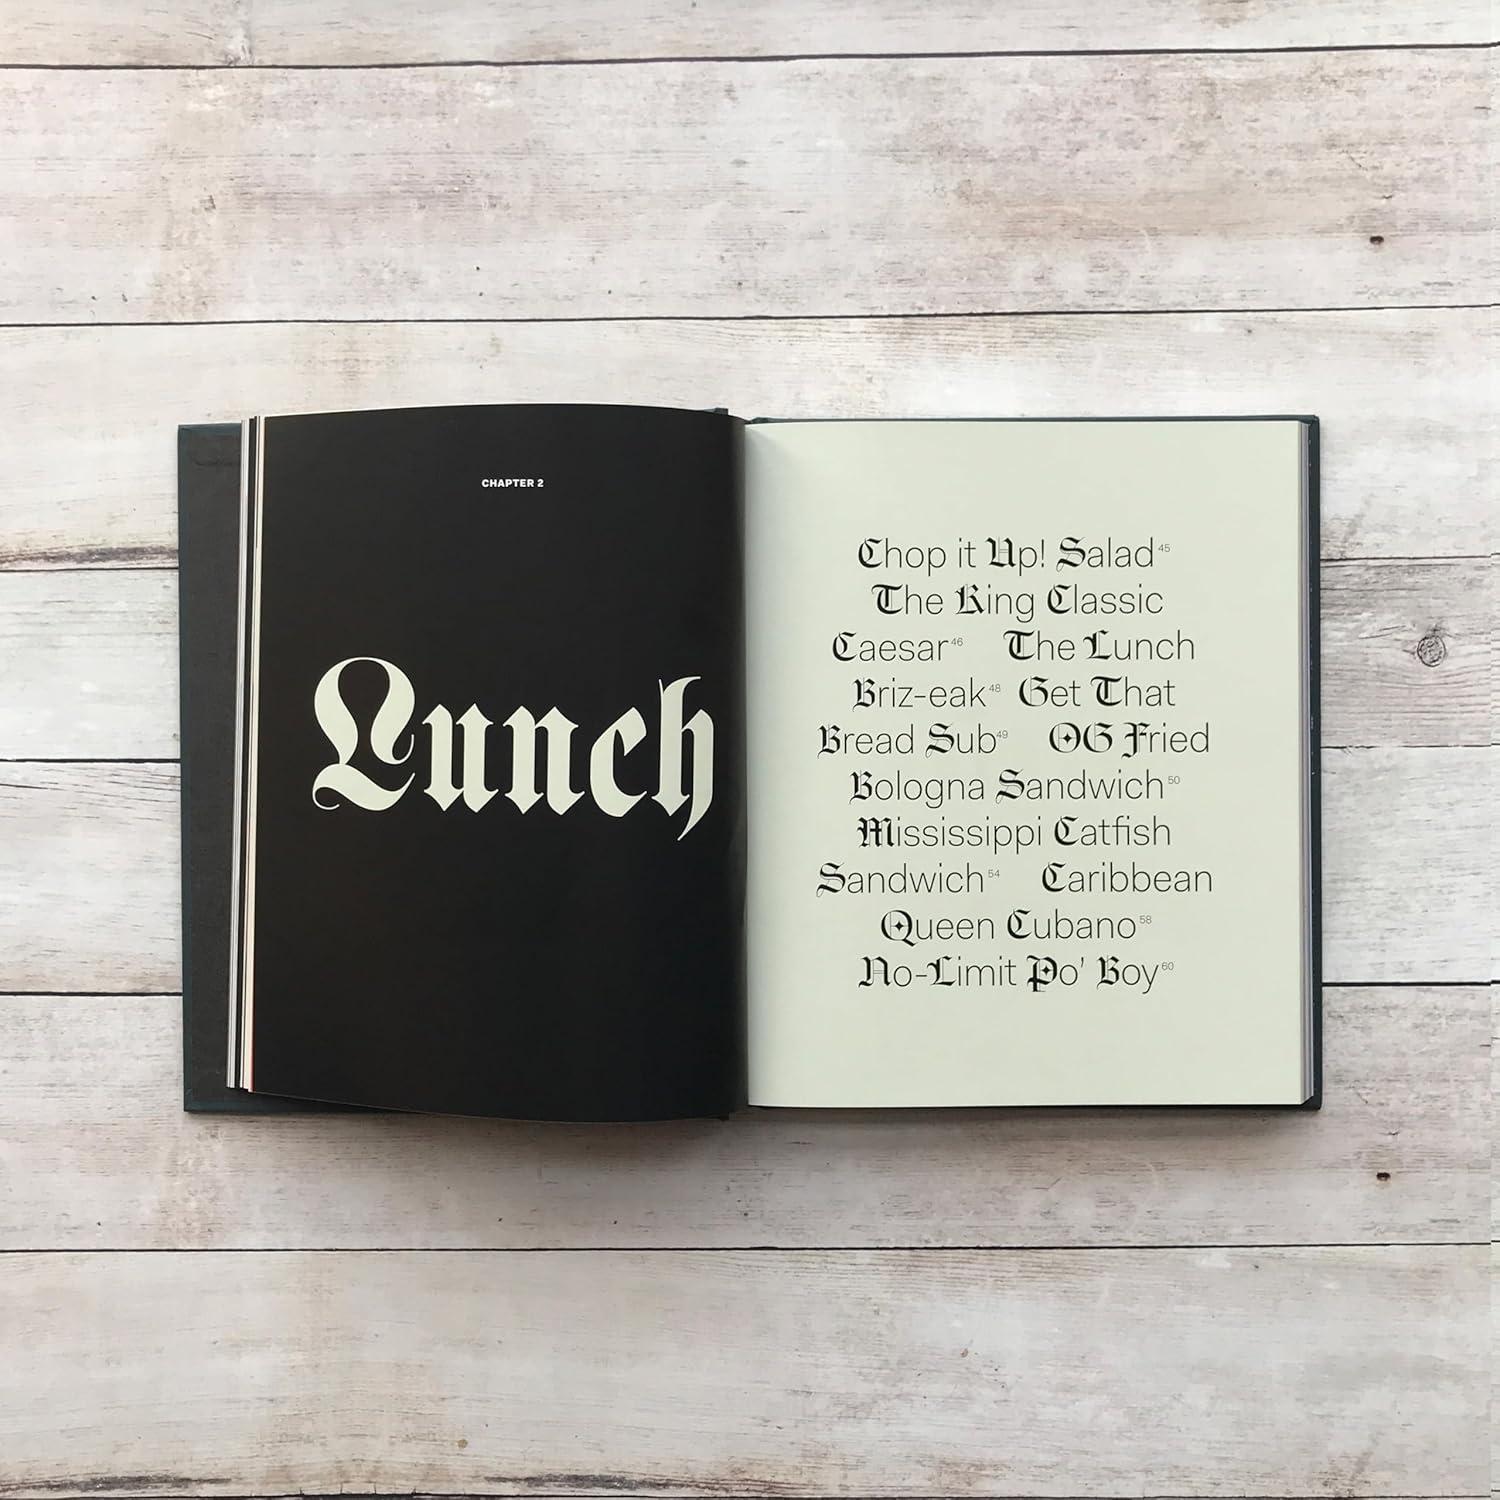 CHAPTER 2
Lunch
Chop it Up! Salad 45
The King Classic
Caesar 46 The Lunch
Briz-eak 48 Get That
Bread Sub 49 OG Fried
Bologna Sandwich 50
Mississippi Catfish
Sandwich 54 Caribbean
Queen Cubano 58
No-Limit Po' Boy 60